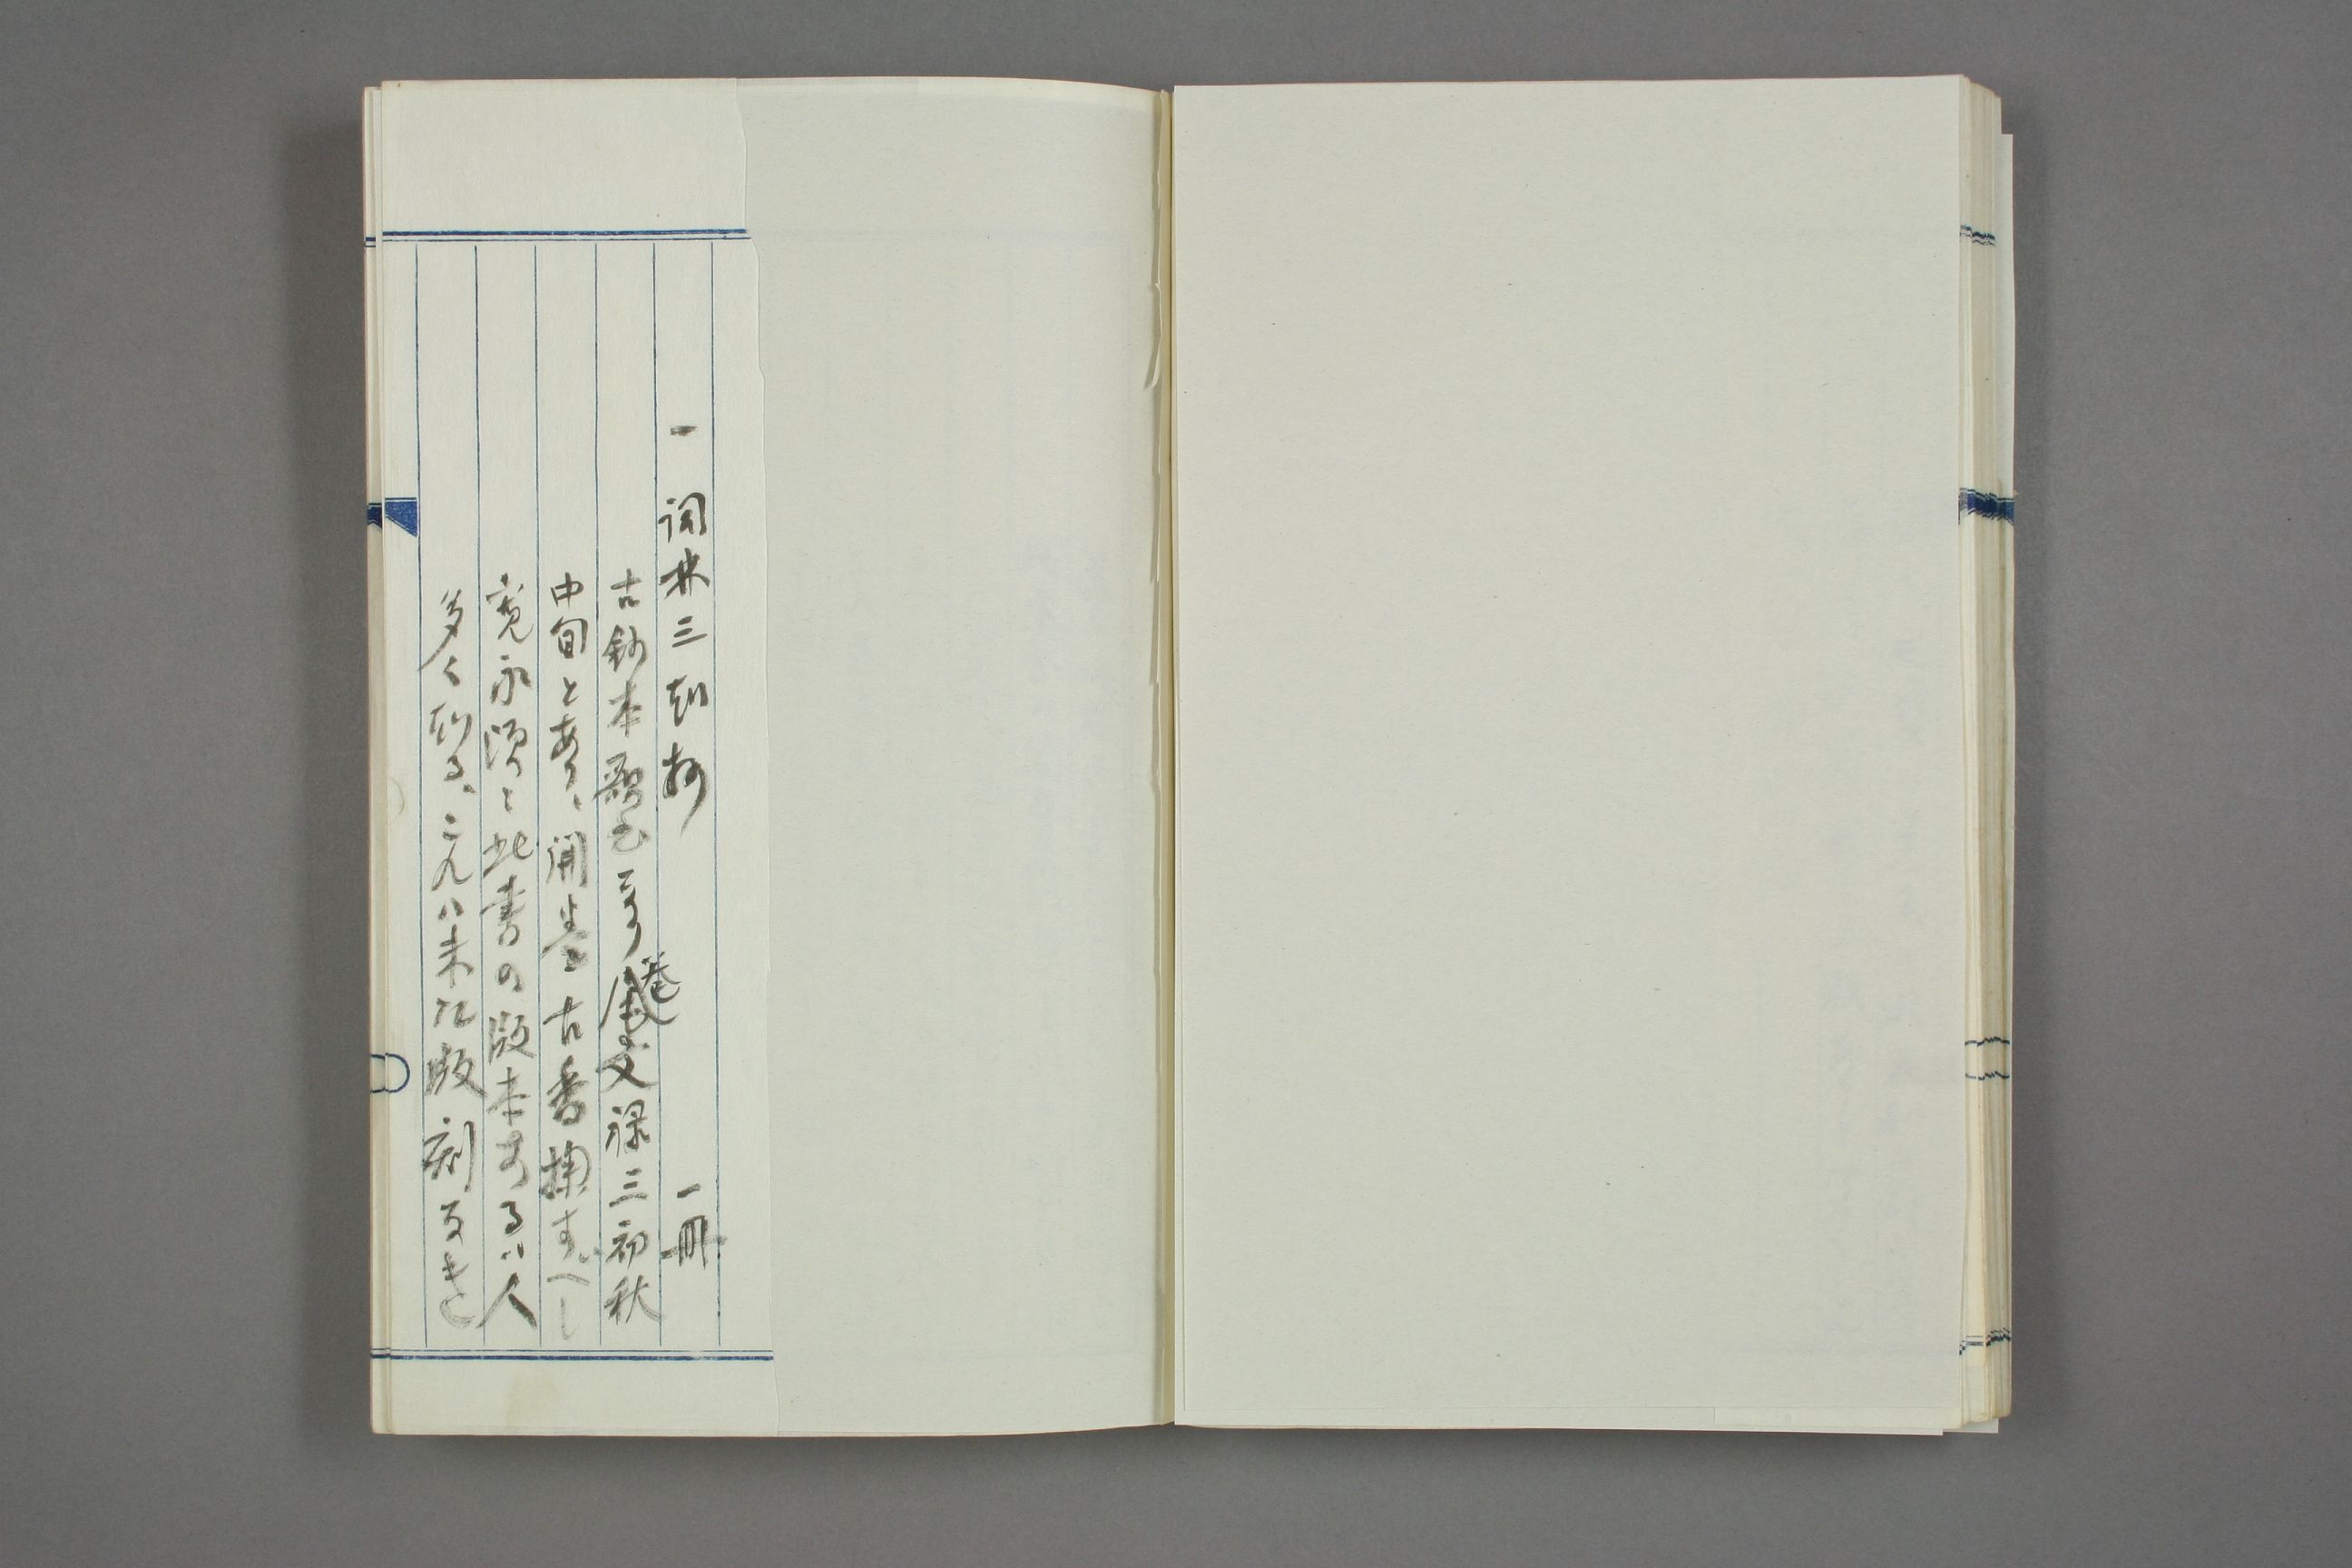 一 詞林三知抄 一冊
古鈔本歌書 巻文禄三初秋
中旬とあり、開巻古香掬すべし
寛永頃に此書の版本あるハ人
多く知る、これハ未だ版刻なきと